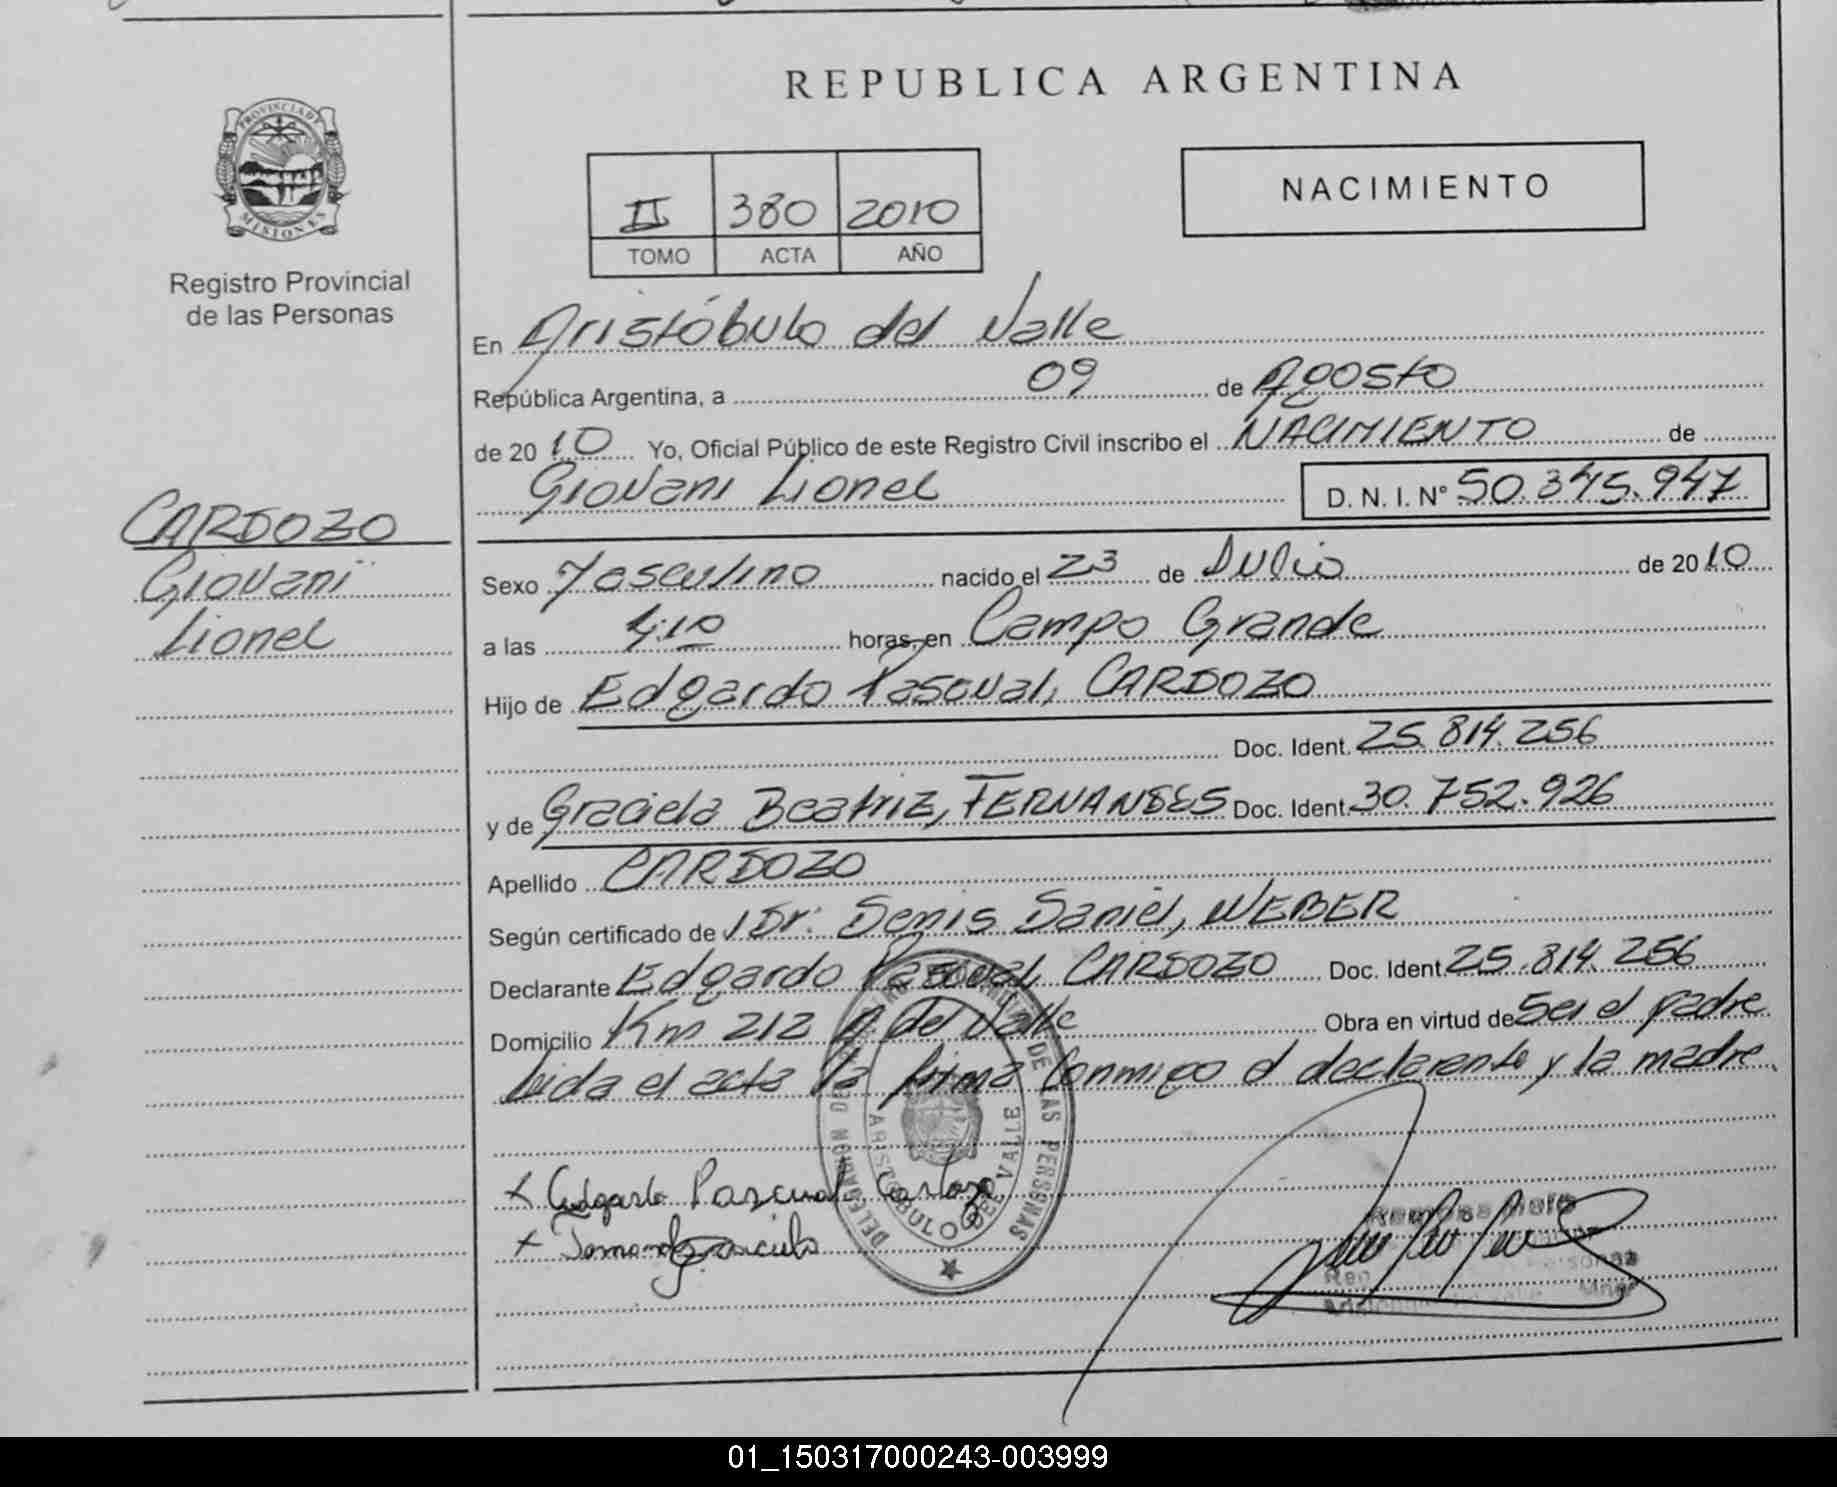 PROVINCIA DE
MISIONES
Registro Provincial
de las Personas
CARDOZO
Giovani
Lionel
REPUBLICA ARGENTINA
II 380 2010
TOMO ACTA AÑO
NACIMIENTO
En Aristóbulo del Valle
República Argentina, a 09 de Agosto
de 2010 Yo, Oficial Público de este Registro Civil inscribo el NACIMIENTO de
Giovani Lionel D. N. I. N° 50.345.947
Sexo Masculino nacido el 23 de Julio de 2010
a las 4:10 horas, en Campo Grande
Hijo de Edgardo Pascual, CARDOZO
Doc. Ident. 25.814.256
y de Graciela Beatriz, FERNANDES Doc. Ident. 30.752.926
Apellido CARDOZO
Según certificado de / Dr: Denis Daniel, WEBER
Declarante Edgardo Pascual, CARDOZO Doc. Ident. 25.814.256
Domicilio Km 212 A. del Valle Obra en virtud de Ser el padre
Leida el acta la firma Conmigo el declarante y la madre
DE LAS PERSONAS
ARISTOBULO DEL VALLE
x Edgardo Pascual Cardozo
01_150317000243-003999